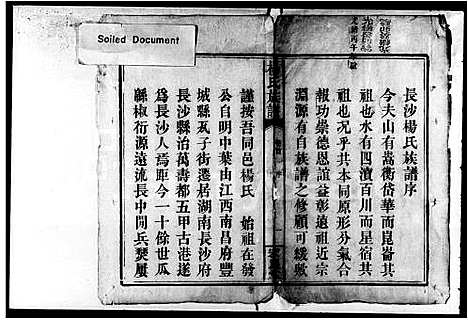 Soiled Document
長沙楊氏族譜序
今夫山有嵩衡岱華而崑崙其
祖也水有四瀆百川而星宿其
祖也况乎共本同原形分氣合
報功崇德恩誼益彰遠祖近宗
淵源有自族譜之修顧可緩歟
楊氏族譜
謹按吾同邑楊氏 始祖在發
公自明中葉由江西南昌府豐
城縣瓦子街遷居湖南長沙府
長沙縣治萬壽都五甲古港遂
為長沙人焉距今一十餘世瓜
緜椒衍源遠流長中閒兵燹屢